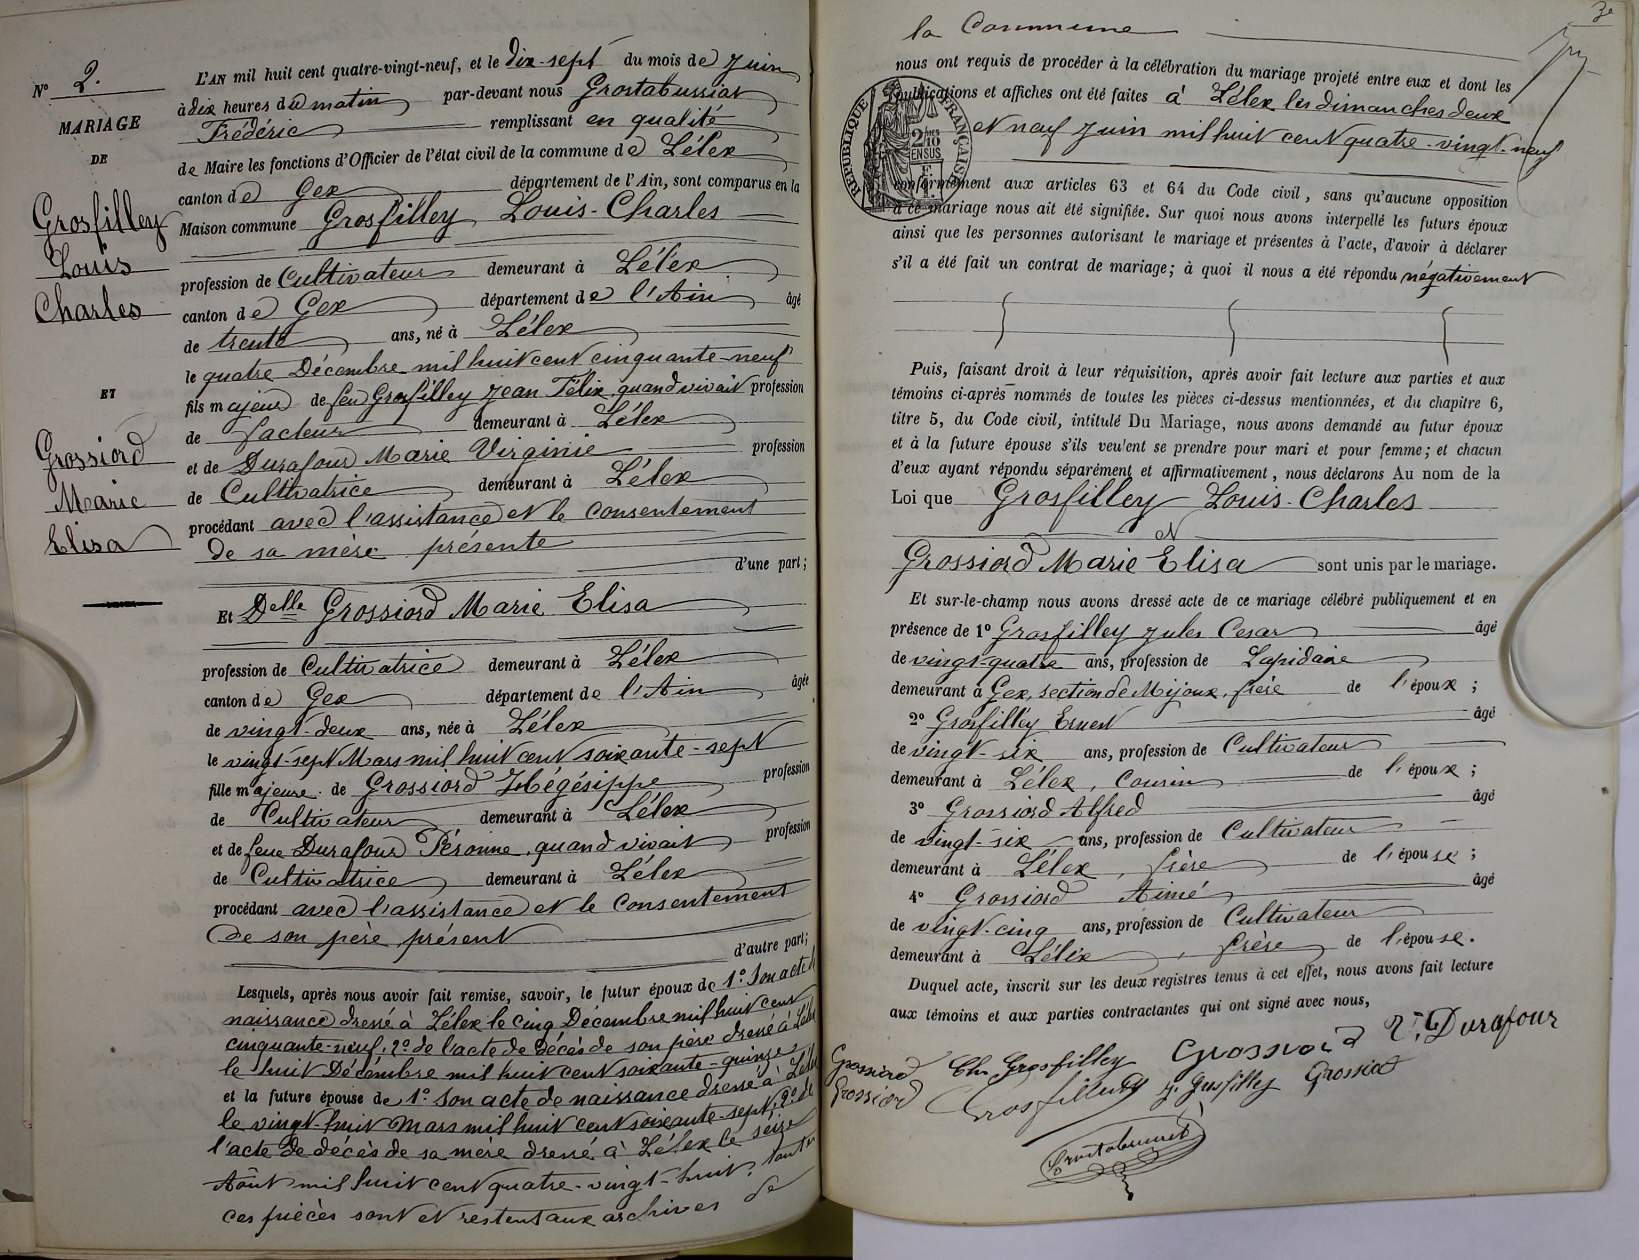 N° 2.
MARIAGE
DE
Grosfilley
Louis
Charles
ET
Grossiord
Marie
Elisa
L'AN mil huit cent quatre-vingt-neuf, et le dix-sept du mois de Juin
à dix heures du matin par-devant nous Grostabussiat
Frédéric remplissant en qualité
de Maire les fonctions d'Officier de l'état civil de la commune de Lélex
canton de Gex département de l'Ain, sont comparus en la
Maison commune Grosfilley Louis-Charles
profession de Cultivateur demeurant à Lélex
canton de Gex département de l'Ain âgé
de trente ans, né à Lélex
le quatre Décembre mil huit cent cinquante-neuf
fils majeur de feu Grosfilley Jean Félix quand vivait profession
de facteur demeurant à Lélex
et de Durafour Marie Virginie profession
de Cultivatrice demeurant à Lélex
procédant avec l'assistance et le consentement
de sa mère présente
d'une part;
Et Delle Grossiord Marie Elisa
profession de Cultivatrice demeurant à Lélex
canton de Gex département de l'Ain âgée
de vingt-deux ans, née à Lélex
le vingt-sept Mars mil huit cent soixante-sept
fille majeure de Grossiord Hégésippe profession
de Cultivateur demeurant à Lélex
et de feue Durafour Péronne, quand vivait profession
de Cultivatrice demeurant à Lélex
procédant avec l'assistance et le consentement
de son père présent
d'autre part;
Lesquels, après nous avoir fait remise, savoir, le futur époux de 1° Son acte de
naissance dressé à Lélex le cinq Décembre mil huit cent
cinquante-neuf; 2° de l'acte de décès de son père dressé à Lélex
le huit Décembre mil huit cent soixante-quinze
et la future épouse de 1° Son acte de naissance dressé à Lélex
le vingt-huit Mars mil huit cent soixante-sept; 2° de
l'acte de décès de sa mère dressé à Lélex le seize
Août mil huit cent quatre-vingt-huit; toutes
ces pièces sont et restent aux archives de
3e
la Commune
nous ont requis de procéder à la célébration du mariage projeté entre eux et dont les
publications et affiches ont été faites à Lélex les dimanches deux
et neuf Juin mil huit cent quatre-vingt-neuf
RÉPUBLIQUE FRANÇAISE
2/10
EN SUS
conformément aux articles 63 et 64 du Code civil, sans qu'aucune opposition
à ce mariage nous ait été signifiée. Sur quoi nous avons interpellé les futurs époux
ainsi que les personnes autorisant le mariage et présentes à l'acte, d'avoir à déclarer
s'il a été fait un contrat de mariage; à quoi il nous a été répondu négativement
Puis, faisant droit à leur réquisition, après avoir fait lecture aux parties et aux
témoins ci-après nommés de toutes les pièces ci-dessus mentionnées, et du chapitre 6,
titre 5, du Code civil, intitulé Du Mariage, nous avons demandé au futur époux
et à la future épouse s'ils veulent se prendre pour mari et pour femme; et chacun
d'eux ayant répondu séparément et affirmativement, nous déclarons Au nom de la
Loi que Grosfilley Louis-Charles
et
Grossiord Marie Elisa sont unis par le mariage.
Et sur-le-champ nous avons dressé acte de ce mariage célébré publiquement et en
présence de 1° Grosfilley Jules Cesar âgé
de vingt-quatre ans, profession de Lapidaire
demeurant à Gex, section de Mijoux, frère de l'époux;
2° Grosfilley Ernest âgé
de vingt-six ans, profession de Cultivateur
demeurant à Lélex, Cousin de l'époux;
3° Grossiord Alfred âgé
de vingt-six ans, profession de Cultivateur
demeurant à Lélex, frère de l'épouse;
4° Grossiord Aimé âgé
de vingt-cinq ans, profession de Cultivateur
demeurant à Lélex, frère de l'épouse.
Duquel acte, inscrit sur les deux registres tenus à cet effet, nous avons fait lecture
aux témoins et aux parties contractantes qui ont signé avec nous,
Grossiord Ch Grosfilley Grossiord V. Durafour
Grossiord Grosfilley J. Grosfilley Grossiord
Grostabussiat